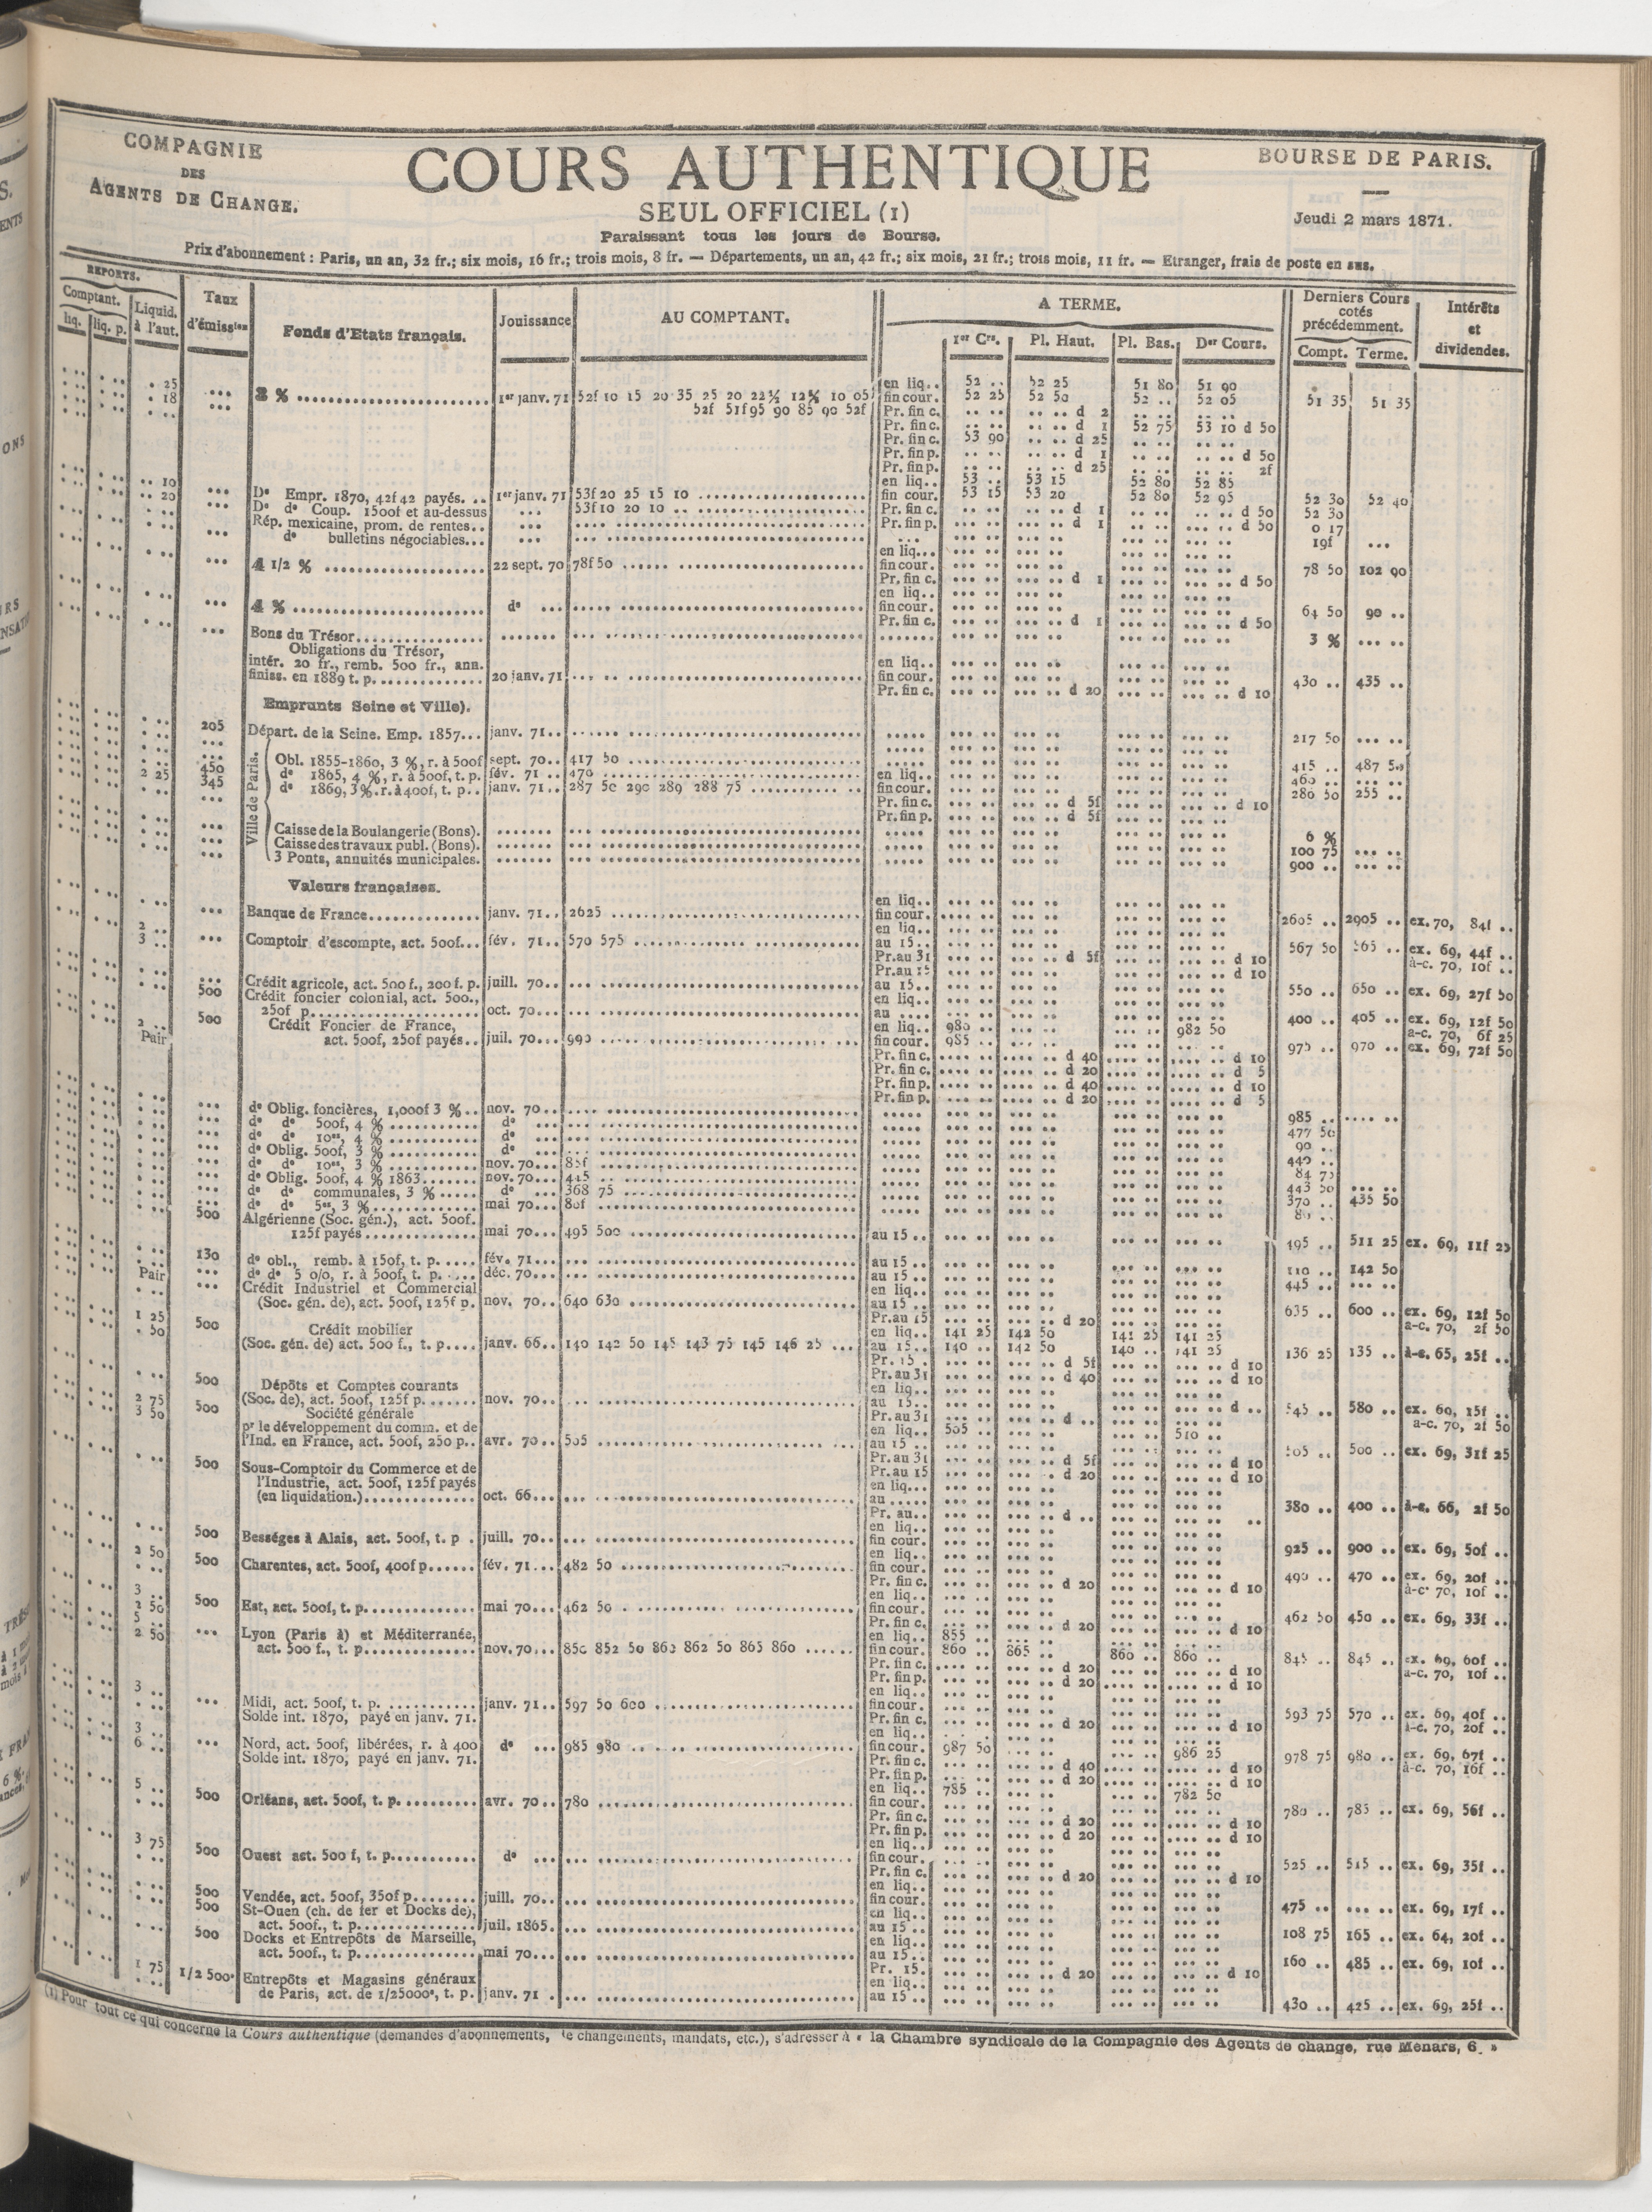 COMPAGNIE
DES
AGENTS DE CHANGE.
COURS AUTHENTIQUE
SEUL OFFICIEL (1)
Paraissant tous les jours de Bourse.
BOURSE DE PARIS.
Jeudi 2 mars 1871.
Prix d'abonnement : Paris, un an, 32 fr.; six mois, 16 fr.; trois mois, 8 fr. — Départements, un an, 42 fr.; six mois, 21 fr.; trois mois, 11 fr. — Etranger, frais de poste en sus.
REPORTS. Comptant. liq. liq. p. Liquid. à l'aut.
Taux d'émissien
Fonds d'Etats français.
Jouissance
AU COMPTANT.
A TERME.
1er Crs. Pl. Haut. Pl. Bas. Der Cours.
Derniers Cours cotés précédemment. Compt. Terme.
Intérêts et dividendes.
.. 25 en liq.. 52 .. 52 25 51 80 51 90
.. 18 3 % 1er janv. 71 52f 10 15 20 35 25 20 22½ 12½ 10 05 fin cour. 52 25 52 50 52 .. 52 05 51 35 51 35
52f 51f95 90 85 90 52f Pr. fin c. d 2
Pr. fin c. d 1 52 75 53 10 d 50
Pr. fin c. 53 90 d 25
Pr. fin p. d 1 d 50
Pr. fin p. d 25 2f
.. 10 en liq.. 53 .. 53 15 52 80 52 85
.. 20 De Empr. 1870, 42f 42 payés. 1er janv. 71 53f 20 25 15 10 fin cour. 53 15 53 20 52 80 52 95 52 30 52 40
De de Coup. 1500f et au-dessus 53f 10 20 10 Pr. fin c. d 1 d 50 52 30
Rép. mexicaine, prom. de rentes.. Pr. fin p. d 1 d 50 0 17
de bulletins négociables... 19f
en liq...
4 1/2 % 22 sept. 70 78f 50 fin cour. 78 50 102 90
Pr. fin c. d 1 d 50
en liq..
4 % de fin cour. 64 50 90 ..
Pr. fin c. d 1 d 50
Bons du Trésor 3 %
Obligations du Trésor,
intér. 20 fr., remb. 500 fr., ann. en liq..
finiss. en 1889 t. p. 20 janv. 71 fin cour. 430 .. 435 ..
Pr. fin c. d 20 d 10
Emprunts Seine et Ville).
205 Départ. de la Seine. Emp. 1857... janv. 71.. 217 50
Ville de Paris.
Obl. 1855-1860, 3 %, r. à 500f sept. 70.. 417 50 415 .. 487 50
450 de 1865, 4 %, r. à 500f, t. p. fév. 71.. 470 en liq.. 460 ..
2 25 345 de 1869, 3 %. r. à 400f, t. p.. janv. 71.. 287 50 290 289 288 75 fin cour. 286 50 255 ..
Pr. fin c. d 5f d 10
Pr. fin p. d 5f
Caisse de la Boulangerie (Bons). 6 %
Caisse des travaux publ. (Bons). 100 75
3 Ponts, annuités municipales. 900 ..
Valeurs françaises.
en liq..
Banque de France janv. 71.. 2625 fin cour. 2605 .. 2905 .. ex. 70, 84f ..
2 .. en liq..
3 .. Comptoir d'escompte, act. 500f... fév. 71.. 570 575 au 15.. 567 50 565 .. ex. 69, 44f ..
Pr. au 31 d 5f d 10 à-c. 70, 10f ..
Pr. au 15 d 10
Crédit agricole, act. 500 f., 200 f. p. juill. 70... au 15.. 550 .. 650 .. ex. 69, 27f 50
500 Crédit foncier colonial, act. 500., en liq..
250f p. oct. 70... au .... 400 .. 405 .. ex. 69, 12f 50
2 .. 500 Crédit Foncier de France, en liq.. 980 .. 982 50 a-c. 70, 6f 25
Pair act. 500f, 250f payés.. juil. 70... 990 fin cour. 985 .. 975 .. 970 .. ex. 69, 72f 50
Pr. fin c. d 40 d 10
Pr. fin c. d 20 d 5
Pr. fin p. d 40 d 10
Pr. fin p. d 20 d 5
de Oblig. foncières, 1,000f 3 %.. nov. 70... 985 ..
de de 500f, 4 % de 477 50
de de 10es, 4 % de 90 ..
de Oblig. 500f, 3 % de 440 ..
de de 10es, 3 % nov. 70... 85f 84 75
de Oblig. 500f, 4 % 1863 nov. 70... 445 443 50
de de communales, 3 % de 368 75 370 .. 435 50
de de 5es, 3 % mai 70... 80f
500 Algérienne (Soc. gén.), act. 500f.
125f payés mai 70... 495 500 au 15.. 495 .. 511 25 ex. 69, 11f 25
130 de obl., remb. à 150f, t. p. fév. 71... au 15.. 110 .. 142 50
de de 5 0/0, r. à 500f, t. p. déc. 70... au 15.. 445 ..
Pair Crédit Industriel et Commercial en liq..
(Soc. gén. de), act. 500f, 125f p. nov. 70.. 640 630 au 15.. 635 .. 600 .. ex. 69, 12f 50
Pr. au 15 d 20 a-c. 70, 2f 50
1 25 500 Crédit mobilier en liq.. 141 25 142 50 141 25 141 25
.. 50 (Soc. gén. de) act. 500 f., t. p. janv. 66.. 140 142 50 145 143 75 145 146 25 au 15.. 140 .. 142 50 140 .. 141 25 136 25 135 .. à-c. 65, 25f ..
Pr. 15 . d 5f d 10
Pr. au 31 d 40 d 10
500 Dépôts et Comptes courants en liq..
(Soc. de), act. 500f, 125f p. nov. 70.. au 15.. 545 .. 580 .. ex. 69, 15f ..
2 75 500 Société générale Pr. au 31 d .. d .. a-c. 70, 2f 50
3 50 pr le développement du comm. et de en liq.. 505 .. 510 ..
l'Ind. en France, act. 500f, 250 p.. avr. 70.. 505 au 15.. 505 .. 500 .. ex. 69, 31f 25
Pr. au 31 d 5f d 10
500 Sous-Comptoir du Commerce et de Pr. au 15 d 20 d 10
l'Industrie, act. 500f, 125f payés en liq...
(en liquidation.) oct. 66... au ..... 380 .. 400 .. à-c. 66, 2f 50
Pr. au.. d ..
en liq..
500 Bességes à Alais, act. 500f, t. p . juill. 70... fin cour. 925 .. 900 .. ex. 69, 50f ..
2 50 en liq..
500 Charentes, act. 500f, 400f p. fév. 71... 482 50 fin cour. 490 .. 470 .. ex. 69, 20f ..
Pr. fin c. d 20 d 10 à-c. 70, 10f ..
3 .. en liq..
2 50 500 Est, act. 500f, t. p. mai 70... 462 50 fin cour. 462 50 450 .. ex. 69, 33f ..
5 .. Pr. fin c. d 20 d 10
2 50 Lyon (Paris à) et Méditerranée, en liq.. 855 ..
act. 500 f., t. p. nov. 70... 850 852 50 860 862 50 865 860 fin cour. 860 .. 865 .. 860 .. 860 .. 845 .. 845 .. ex. 69, 60f ..
Pr. fin c. d 20 d 10 a-c. 70, 10f ..
Pr. fin p. d 20 d 10
3 .. en liq..
Midi, act. 500f, t. p. janv. 71.. 597 50 600 fin cour. 593 75 570 .. ex. 69, 40f ..
Solde int. 1870, payé en janv. 71. Pr. fin c. d 20 d 10 à-c. 70, 20f ..
3 .. en liq..
6 .. Nord, act. 500f, libérées, r. à 400 de 985 980 fin cour. 987 50 986 25 978 75 980 .. ex. 69, 67f ..
Solde int. 1870, payé en janv. 71. Pr. fin c. d 40 d 10 à-c. 70, 16f ..
Pr. fin p. d 20 d 10
5 .. en liq.. 785 .. 782 50
500 Orléans, act. 500f, t. p. avr. 70.. 780 fin cour. 780 .. 785 .. ex. 69, 56f ..
Pr. fin c. d 20 d 10
Pr. fin p. d 20 d 10
3 75 en liq..
500 Ouest act. 500 f, t. p. de fin cour. 525 .. 515 .. ex. 69, 35f ..
Pr. fin c. d 20 d 10
en liq..
500 Vendée, act. 500f, 350f p. juill. 70.. fin cour. 475 .. ex. 69, 17f ..
500 St-Ouen (ch. de fer et Docks de), en liq..
act. 500f., t. p. juil. 1865. au 15.. 108 75 165 .. ex. 64, 20f ..
500 Docks et Entrepôts de Marseille, en liq..
act. 500f., t. p. mai 70... au 15.. 160 .. 485 .. ex. 69, 10f ..
Pr. 15. d 20 d 10
1 75 1/2 500e Entrepôts et Magasins généraux en liq..
de Paris, act. de 1/25000e, t. p. janv. 71 . au 15.. 430 .. 425 .. ex. 69, 25f ..
(1) Pour tout ce qui concerne la Cours authentique (demandes d'abonnements, de changements, mandats, etc.), s'adresser à « la Chambre syndicale de la Compagnie des Agents de change, rue Menars, 6. »